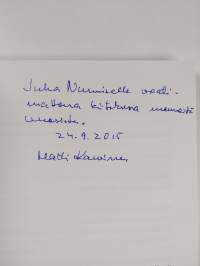 Juha Nurmiselle vaati-
mattomana kiitoksena menneistä
vuosista.
24.9.2015
Matti